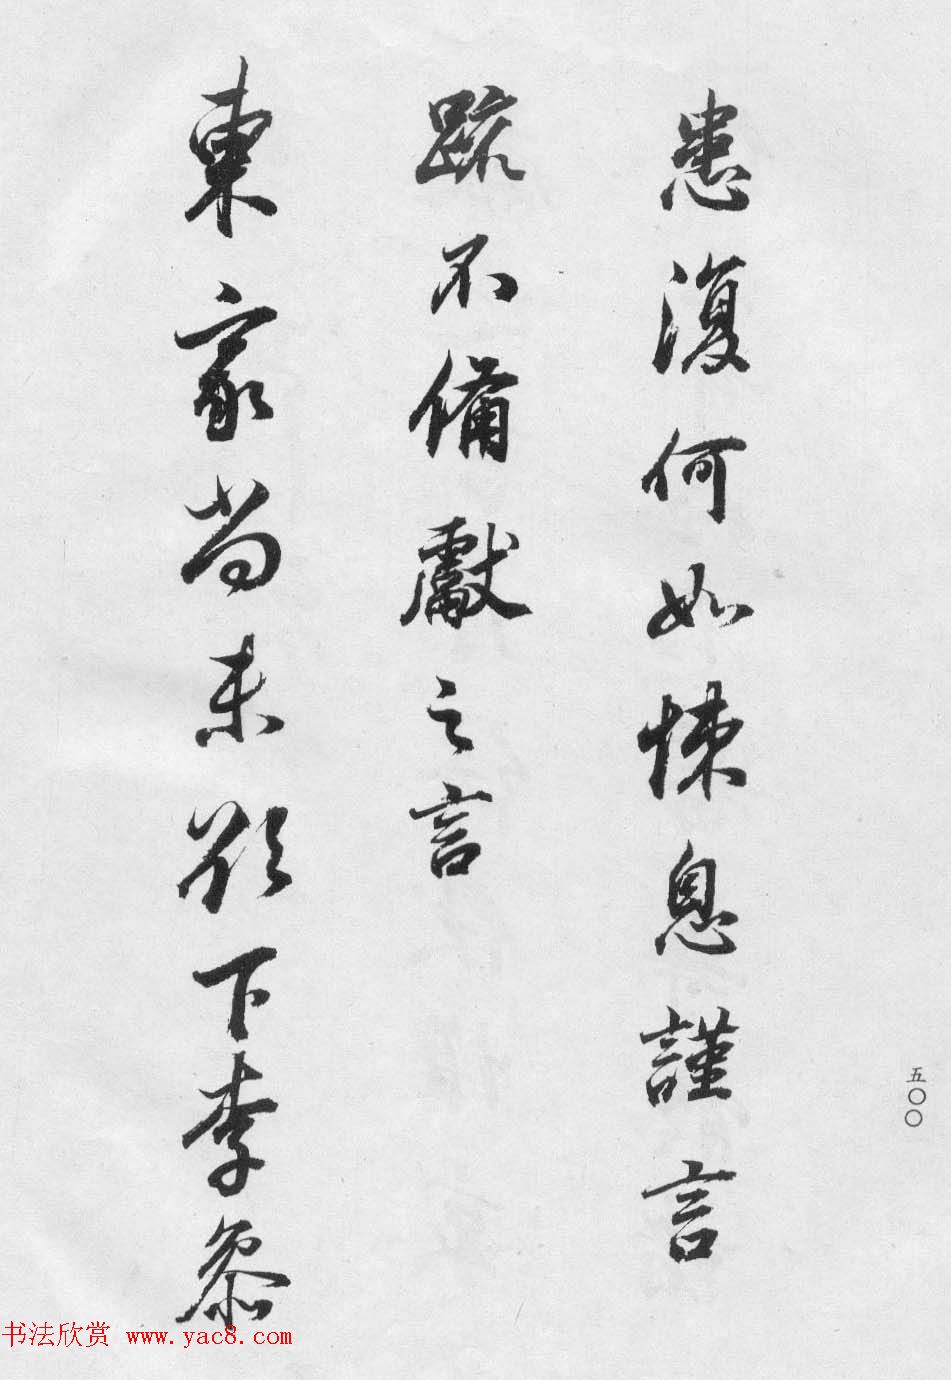 患復何如悚息謹言
疏不備獻之言
東家尚未欲下李參
五〇〇
书法欣赏 www.yac8.com